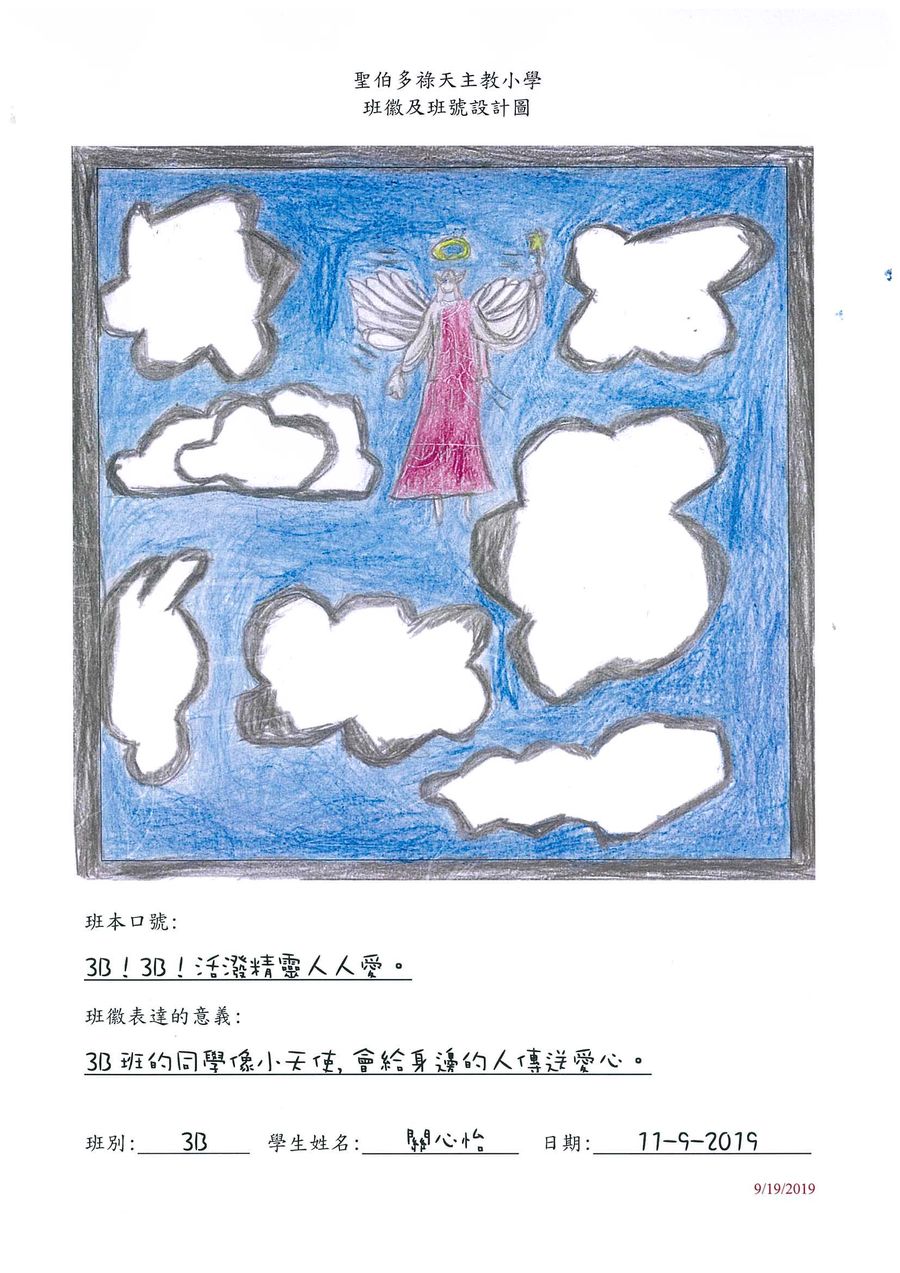 聖伯多祿天主教小學
班徽及班號設計圖
班本口號:
3B！3B！活潑精靈人人愛。
班徽表達的意義:
3B班的同學像小天使,會給身邊的人傳送愛心。
班別: 3B 學生姓名: 關心怡 日期: 11-9-2019
9/19/2019